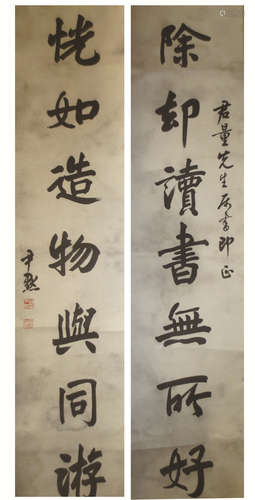 除却讀書無所好
君量先生属書即正
恍如造物與同游
尹默